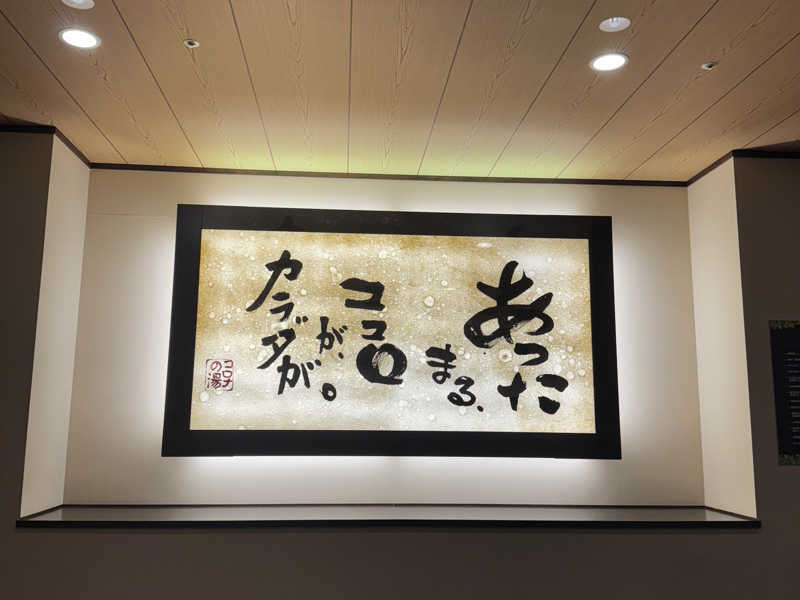 あった
まる、
ココロ
が、
カラダが。
コロナ
の湯